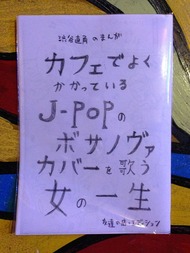 渋谷直角のまんが
カフェでよく
かかっている
J-POPの
ボサノヴァ
カバーを歌う
女の一生